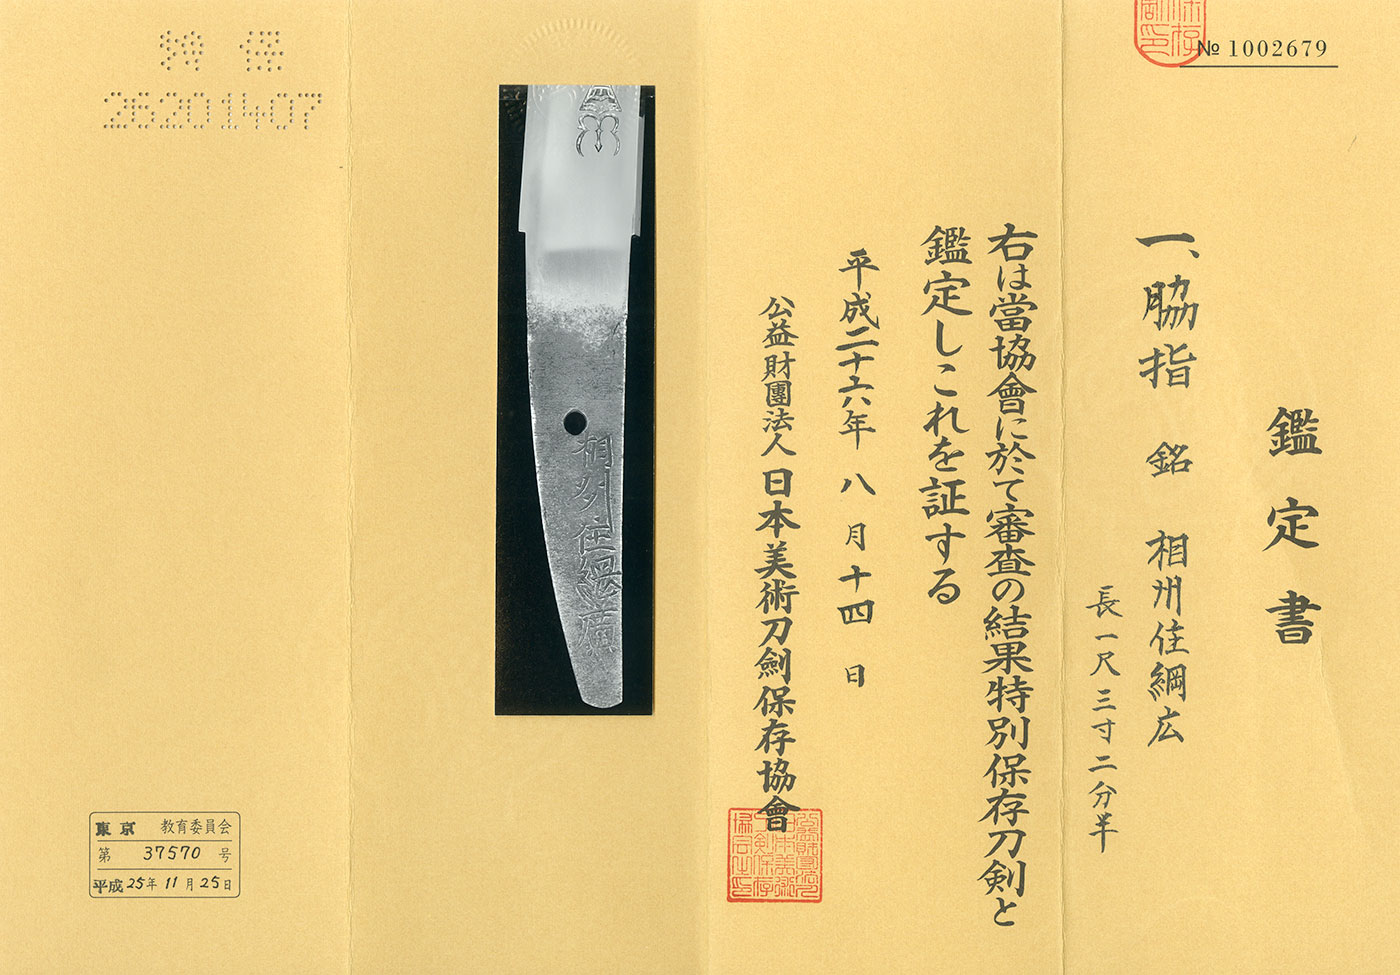 № 1002679
鑑定書
一、脇指 銘 相州住綱広
長一尺三寸二分半
右は當協會に於て審査の結果特別保存刀剣と
鑑定しこれを証する
平成二十六年 八月十四日
公益財團法人 日本美術刀劍保存協會
相州住綱廣
特保
26201407
東京 教育委員会
第 37570 号
平成25年11月25日